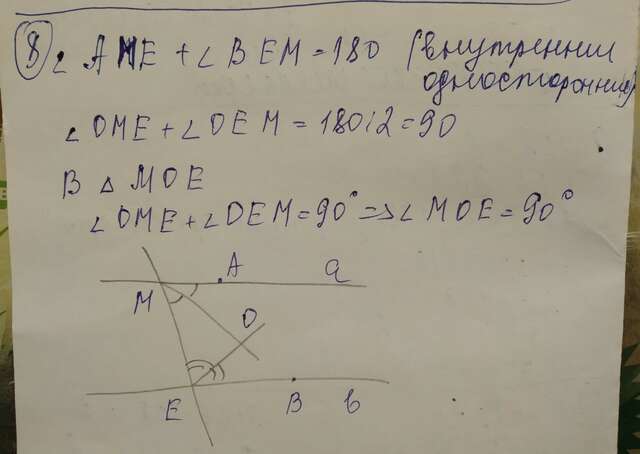 8 ∠ AME + ∠ BEM = 180 (внутренние
односторонние)
∠ OME + ∠ OEM = 180:2 = 90
В △ MOE
∠ OME + ∠ OEM = 90° => ∠ MOE = 90°
A a
M
O
E B b